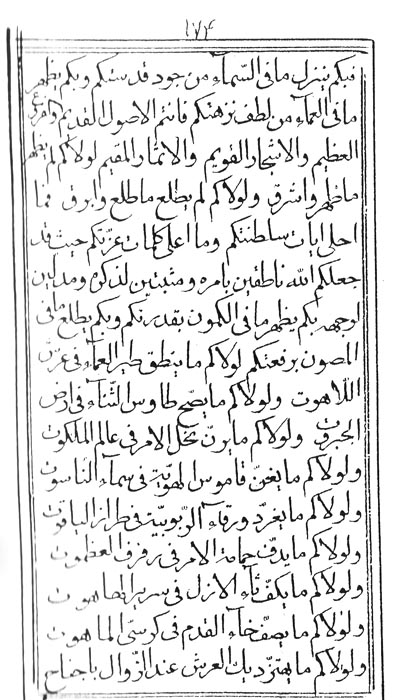 ١٧٤
فبكم ينزل ما فی السّمآء من جود قدستكم و بكم يظهر
ما فی العمآء من لطف نزهتكم فانتم الاصول القديم و الفرع
العظيم و الاشجار القويم و الاثمار المقيم لولاكم لم يظهر
ما ظهر و اشرق و لولاكم لم يطلع ما طلع و ابرق فما
احلی ايات سلطنتكم و ما اعلی كلمات عزّتكم حيث قد
جعلكم الله ناطقين بامره و مثبتين لذكره و مدلين
لوجهه بكم يظهر ما فی الكمون بقدرتكم و بكم يطلع ما فی
المصون برفعتكم لولاكم ما ينطق طير العمآء فی عرش
اللّاهوت و لولاكم ما يصح طاوس الثّنآء فی ارض
الجبروت و لولاكم ما يرنّ نحل الامر فی عالم الملكوت
و لولاكم ما يغنّ قاموس الهويّة فی سمآء النّاسوت
و لولاكم ما يغرّد ورقآء الرّبوبيّة فی طراز الياقوت
و لولاكم ما يدفّ حمامة الامر فی رفرف العظموت
و لولاكم ما يكفّ الازل فی سرير الطاهوت
و لولاكم ما يصفّ القدم فی كرسی الماهوت
و لولاكم ما يهتزّ ديك العرش عند الزّوال باجناح